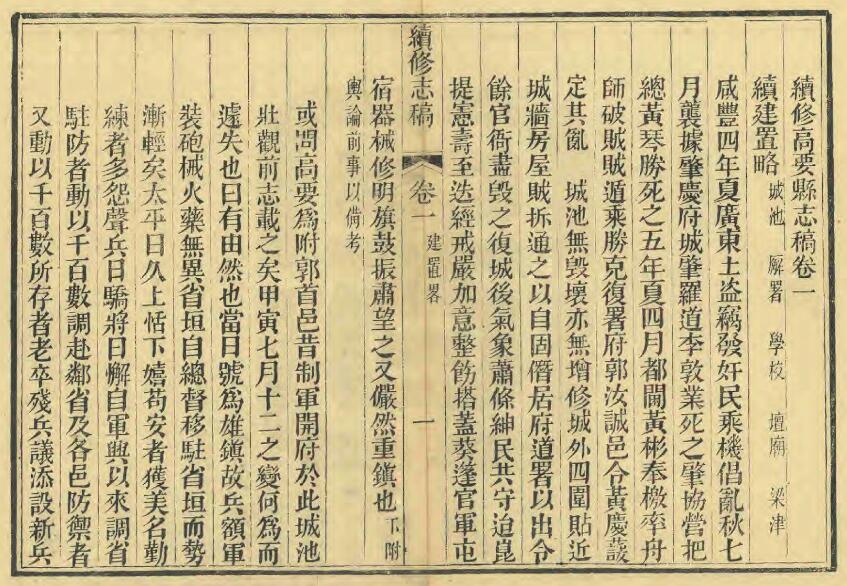 續修高要縣志稿卷一
續建置略 城池 廨署 學校 壇廟 梁津
咸豐四年夏廣東土盗竊發奸民乘機倡亂秋七
月襲據肇慶府城肇羅道李敦業死之肇協營把
總黃琴勝死之五年夏四月都閫黃彬奉檄率舟
師破賊賊遁乘勝克復署府郭汝誠邑令黃慶
定其亂 城池無毀壞亦無增修城外四圍貼近
城牆房屋賊拆通之以自固僭居府道署以出令
餘官衙盡毀之復城後氣象蕭條紳民共守迨崑
提憲壽至迭經戒嚴加意整飭搭蓋葵蓬官軍屯
續修志稿 卷一 建置畧 一
宿器械修明旗鼓振肅望之又儼然重鎮也 下附
輿論前事以備考
或問高要爲附郭首邑昔制軍開府於此城池
壯觀前志載之矣甲寅七月十二之變何爲而
遽失也曰有由然也當日號爲雄鎮故兵額軍
裝砲械火藥無異省垣自總督移駐省垣而勢
漸輕矣太平日久上恬下嬉苟安者獲美名勤
練者多怨聲兵日驕將日懈自軍興以來調省
駐防者動以千百數調赴鄰省及各邑防禦者
又動以千百數所存者老卒殘兵議添設新兵